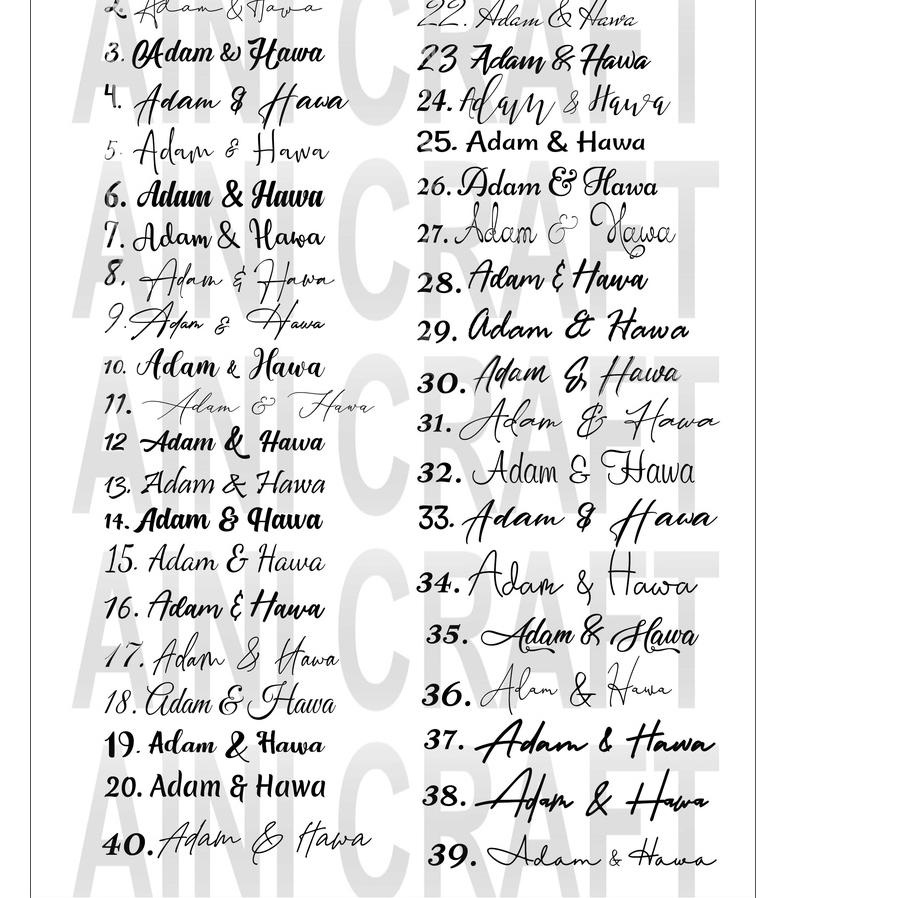 2. Adam & Hawa
3. Adam & Hawa
4. Adam & Hawa
5. Adam & Hawa
6. Adam & Hawa
7. Adam & Hawa
8. Adam & Hawa
9. Adam & Hawa
10. Adam & Hawa
11. Adam & Hawa
12 Adam & Hawa
13. Adam & Hawa
14. Adam & Hawa
15. Adam & Hawa
16. Adam & Hawa
17. Adam & Hawa
18. Adam & Hawa
19. Adam & Hawa
20. Adam & Hawa
40. Adam & Hawa
22. Adam & Hawa
23 Adam & Hawa
24. Adam & Hawa
25. Adam & Hawa
26. Adam & Hawa
27. Adam & Hawa
28. Adam & Hawa
29. Adam & Hawa
30. Adam & Hawa
31. Adam & Hawa
32. Adam & Hawa
33. Adam & Hawa
34. Adam & Hawa
35. Adam & Hawa
36. Adam & Hawa
37. Adam & Hawa
38. Adam & Hawa
39. Adam & Hawa
AINI CRAFT
AINI CRAFT
AINI CRAFT
AINI CRAFT
AINI CRAFT